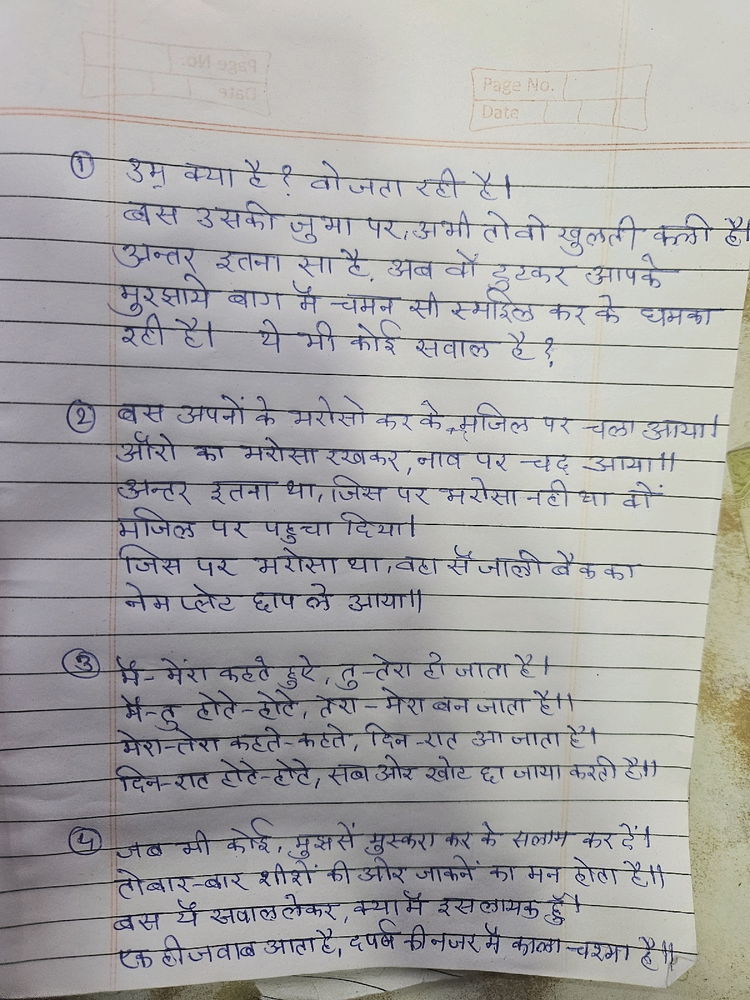 Page No.
Date
① उम्र क्या है ? वो जता रही है।
बस उसकी जुभा पर, अभी तो वो खुलती कली है।
अन्तर इतना सा है, अब वो टुटकर आपके
मुरझाये बाग में चमन सी स्माईल कर के धमका
रही है। ये भी कोई सवाल है ?
② बस अपनों के भरोसो कर के, मंजिल पर चला आया।
औरो का भरोसा रखकर, नाव पर चढ़ आया॥
अन्तर इतना था, जिस पर भरोसा नही था वों
मंजिल पर पहुचा दिया।
जिस पर भरोसा था, वहा सें जाली बैंक का
नेम प्लेट छाप ले आया॥
③ मैं-मेंरा कहते हुऐ, तु-तेरा हो जाता है।
मैं-तु होते-होते, तेरा-मेरा बन जाता है॥
मेरा-तेरा कहते-कहते, दिन-रात आ जाता है।
दिन-रात होते-होते, सब ओर खोट छा जाया करती है॥
④ जब भी कोई, मुझसें मुस्करा कर के सलाम कर दें।
तो बार-बार शीशें की ओर जाकनें का मन होता है॥
बस यें सवाल लेकर, क्या मैं इस लायक हुँ।
एक ही जवाब आता है, दपर्ण की नजर में काला चश्मा है॥